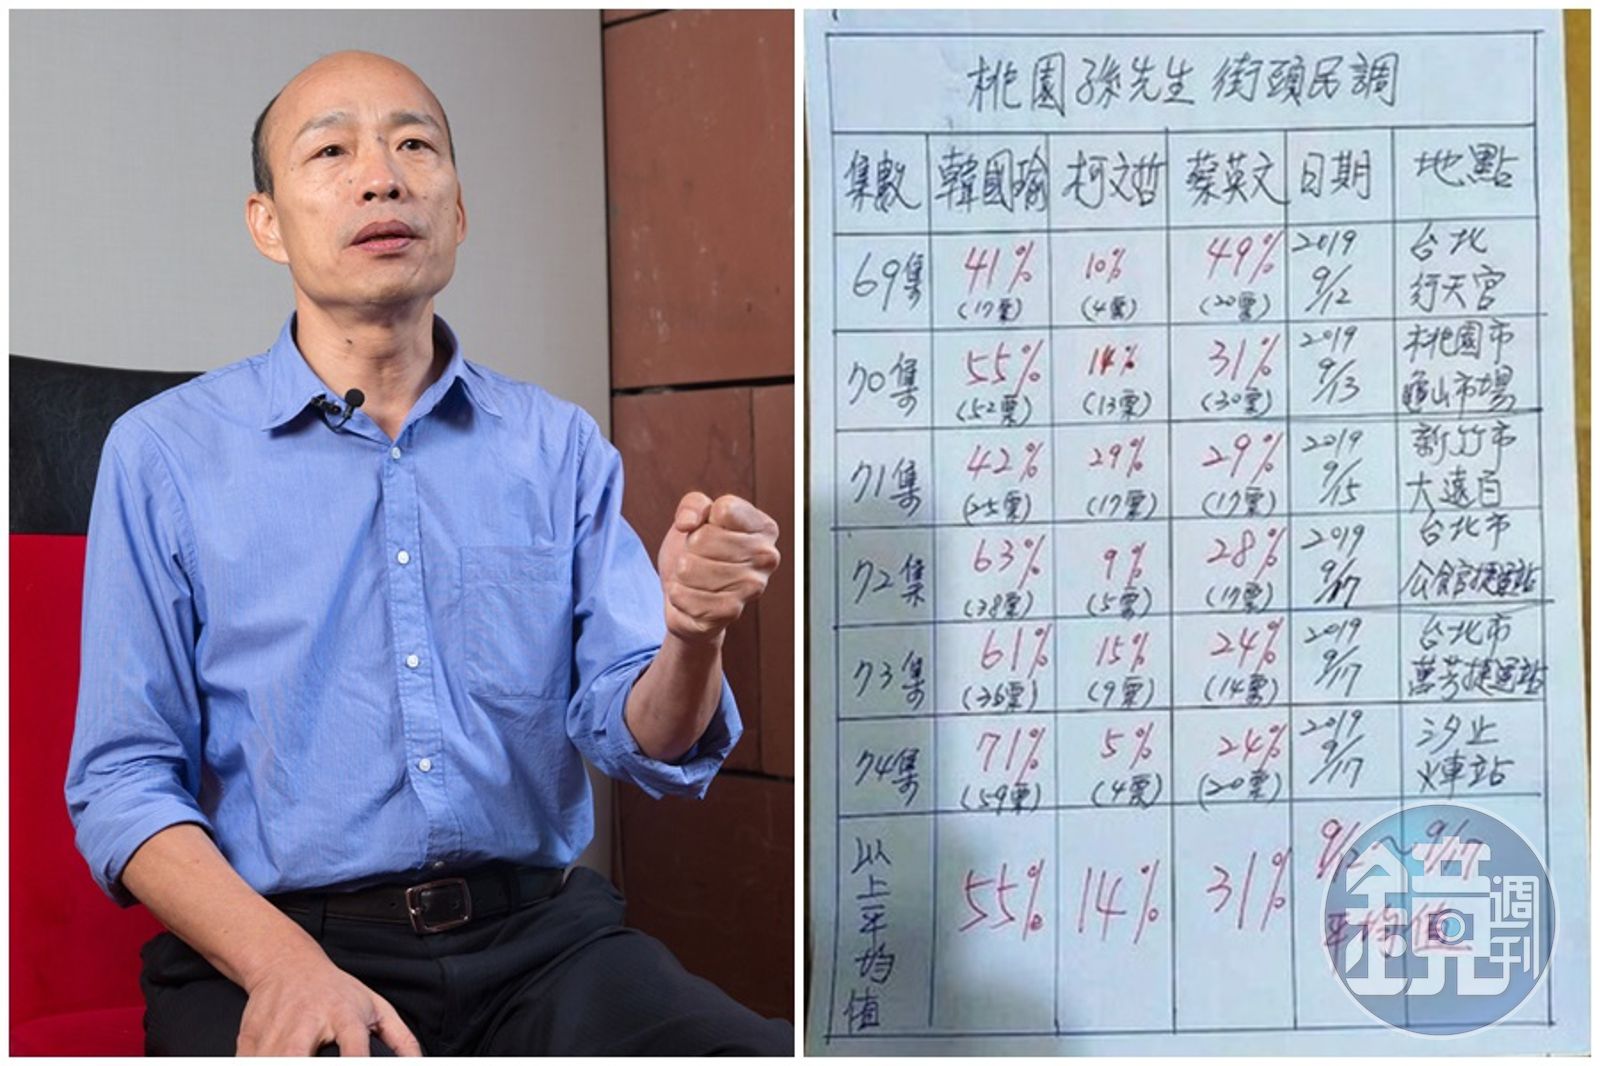 桃園孫先生 街頭民調
集數 韓國瑜 柯文哲 蔡英文 日期 地點
69集 41% (17票) 10% (4票) 49% (20票) 2019 9/12 台北 行天宮
70集 55% (52票) 14% (13票) 31% (30票) 2019 9/13 桃園市 龜山市場
71集 42% (25票) 29% (17票) 29% (17票) 2019 9/15 新竹市 大遠百
72集 63% (38票) 9% (5票) 28% (17票) 2019 9/17 台北市 公館捷運站
73集 61% (36票) 15% (9票) 24% (14票) 2019 9/17 台北市 萬芳捷運站
74集 71% (59票) 5% (4票) 24% (20票) 2019 9/17 汐止 火車站
以上平均值 55% 14% 31% 9/12~9/17 平均值
鏡週刊